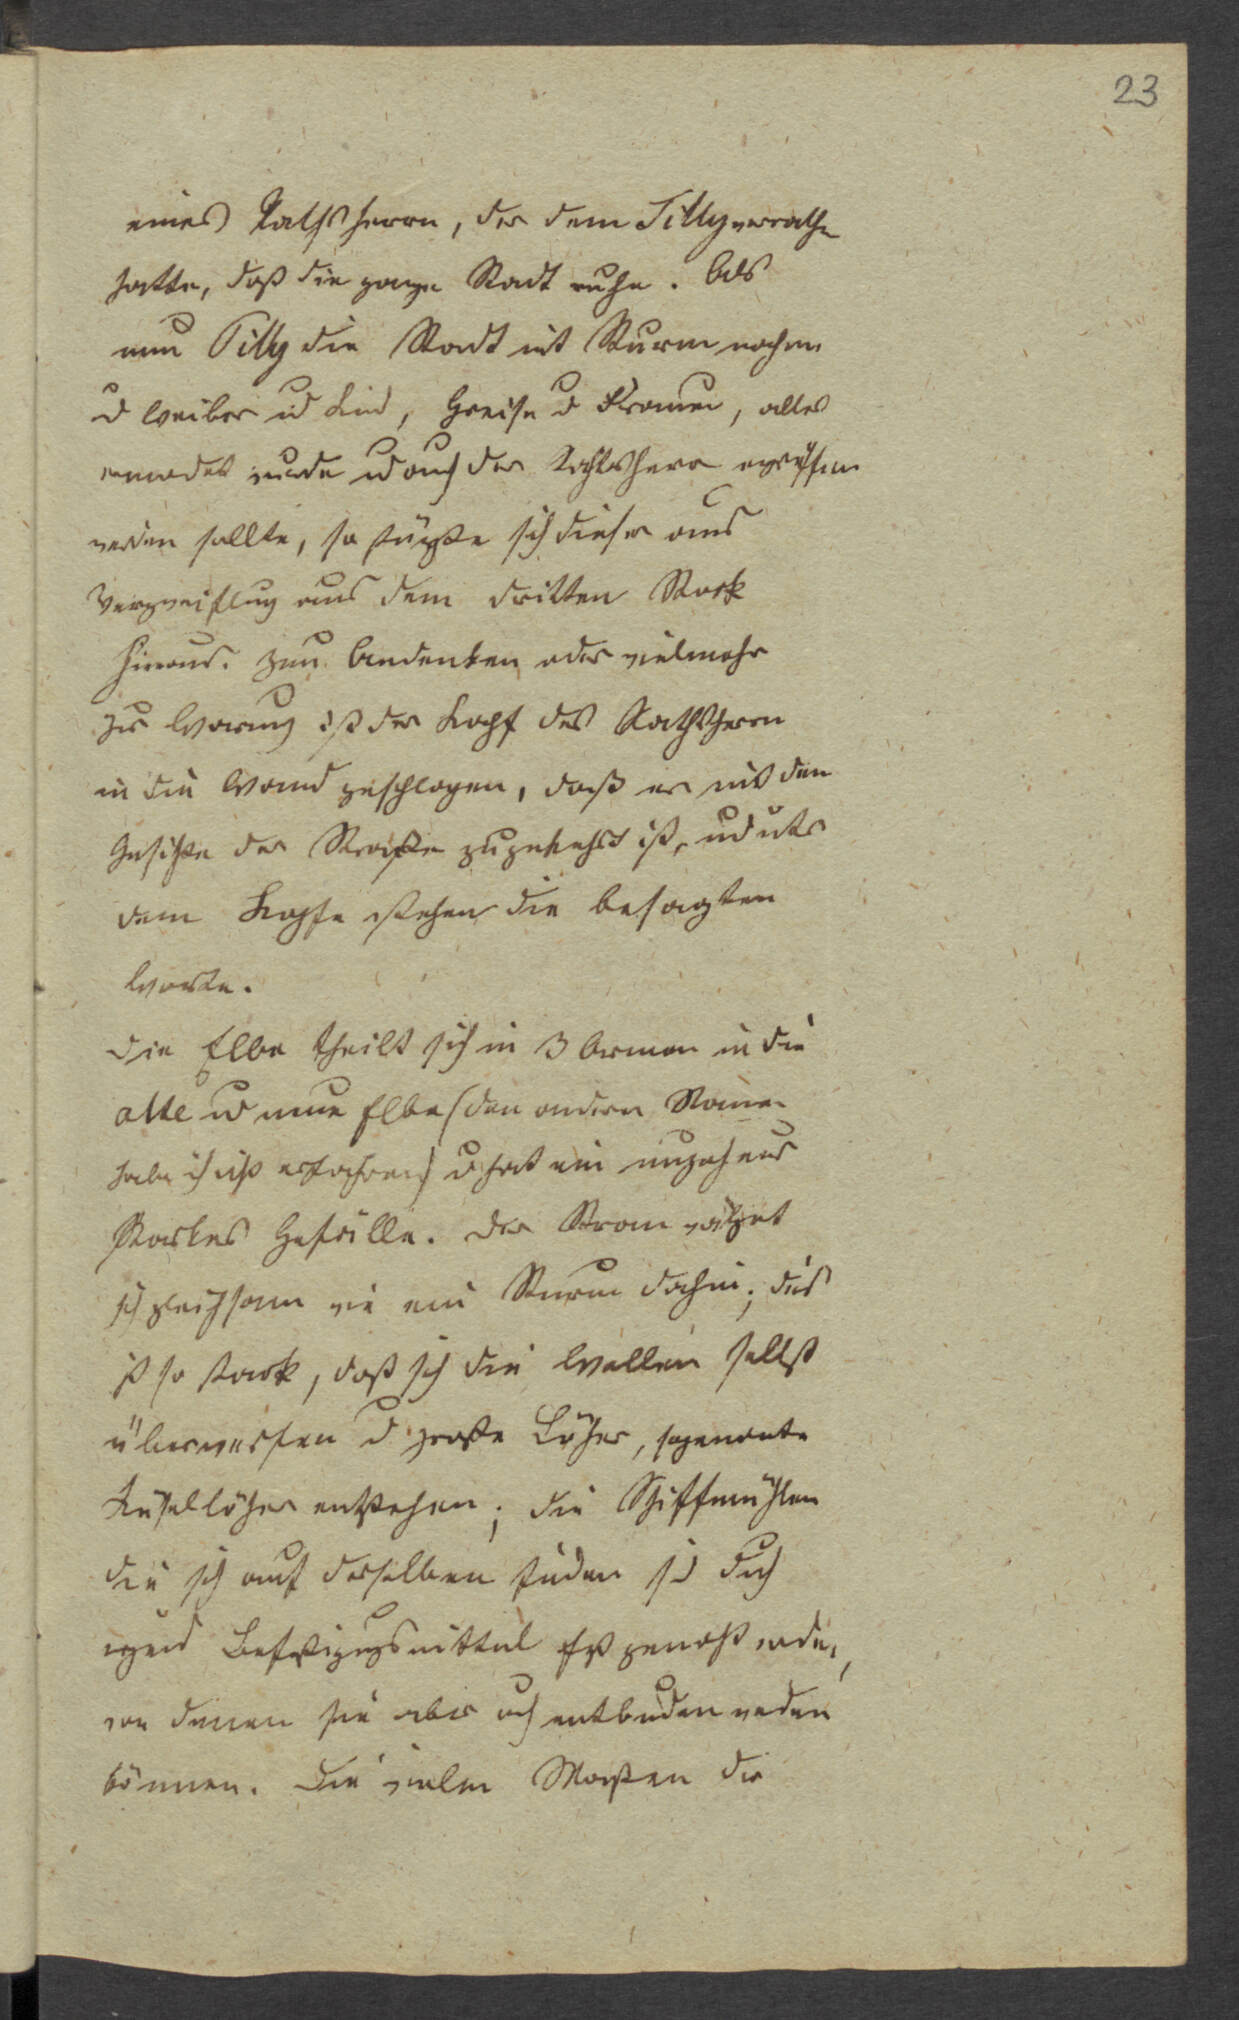 23
eines Rathsherrn, der dem Tilly verrathen
hatte, daß die ganze Stadt ruhe. Als
nun Tilly die Stadt mit Sturm nahm
u Weiber u Kind, Greise u Frauen, alles
ermordet wurde u auch der Rathsherr ergriffen
werden sollte, so stürzte sich dieser aus
Verzweiflug aus dem dritten Stock
hinaus. Zum Andenken oder vielmehr
zur Warnug ist der Kopf des Rathsherrn
in die Wand geschlagen, daß er mit dem
Gesichte der Straße zugekehrt ist, und unter
dem Kopfe stehen die besagten
Worte.
Die Elbe theilt sich in 3 Armen in die
alte u neue Elbe (den andern Namen
habe ich nicht erfahren) u hat ein ungeheures
starkes Gefälle. Der Strom wälzet
sich gleichsam wie ein Sturm dahin; dies
ist so stark, daß sich die Wellen selbst
überwerfen u große Löcher, sogenante
Küsellöcher entstehen; die Schiffmühlen
die sich auf derselben finden sind durch
Befestigugsmittel fest gemacht worden,
von denen sie aber auch entbunden werden
können. Die vielen Masten die